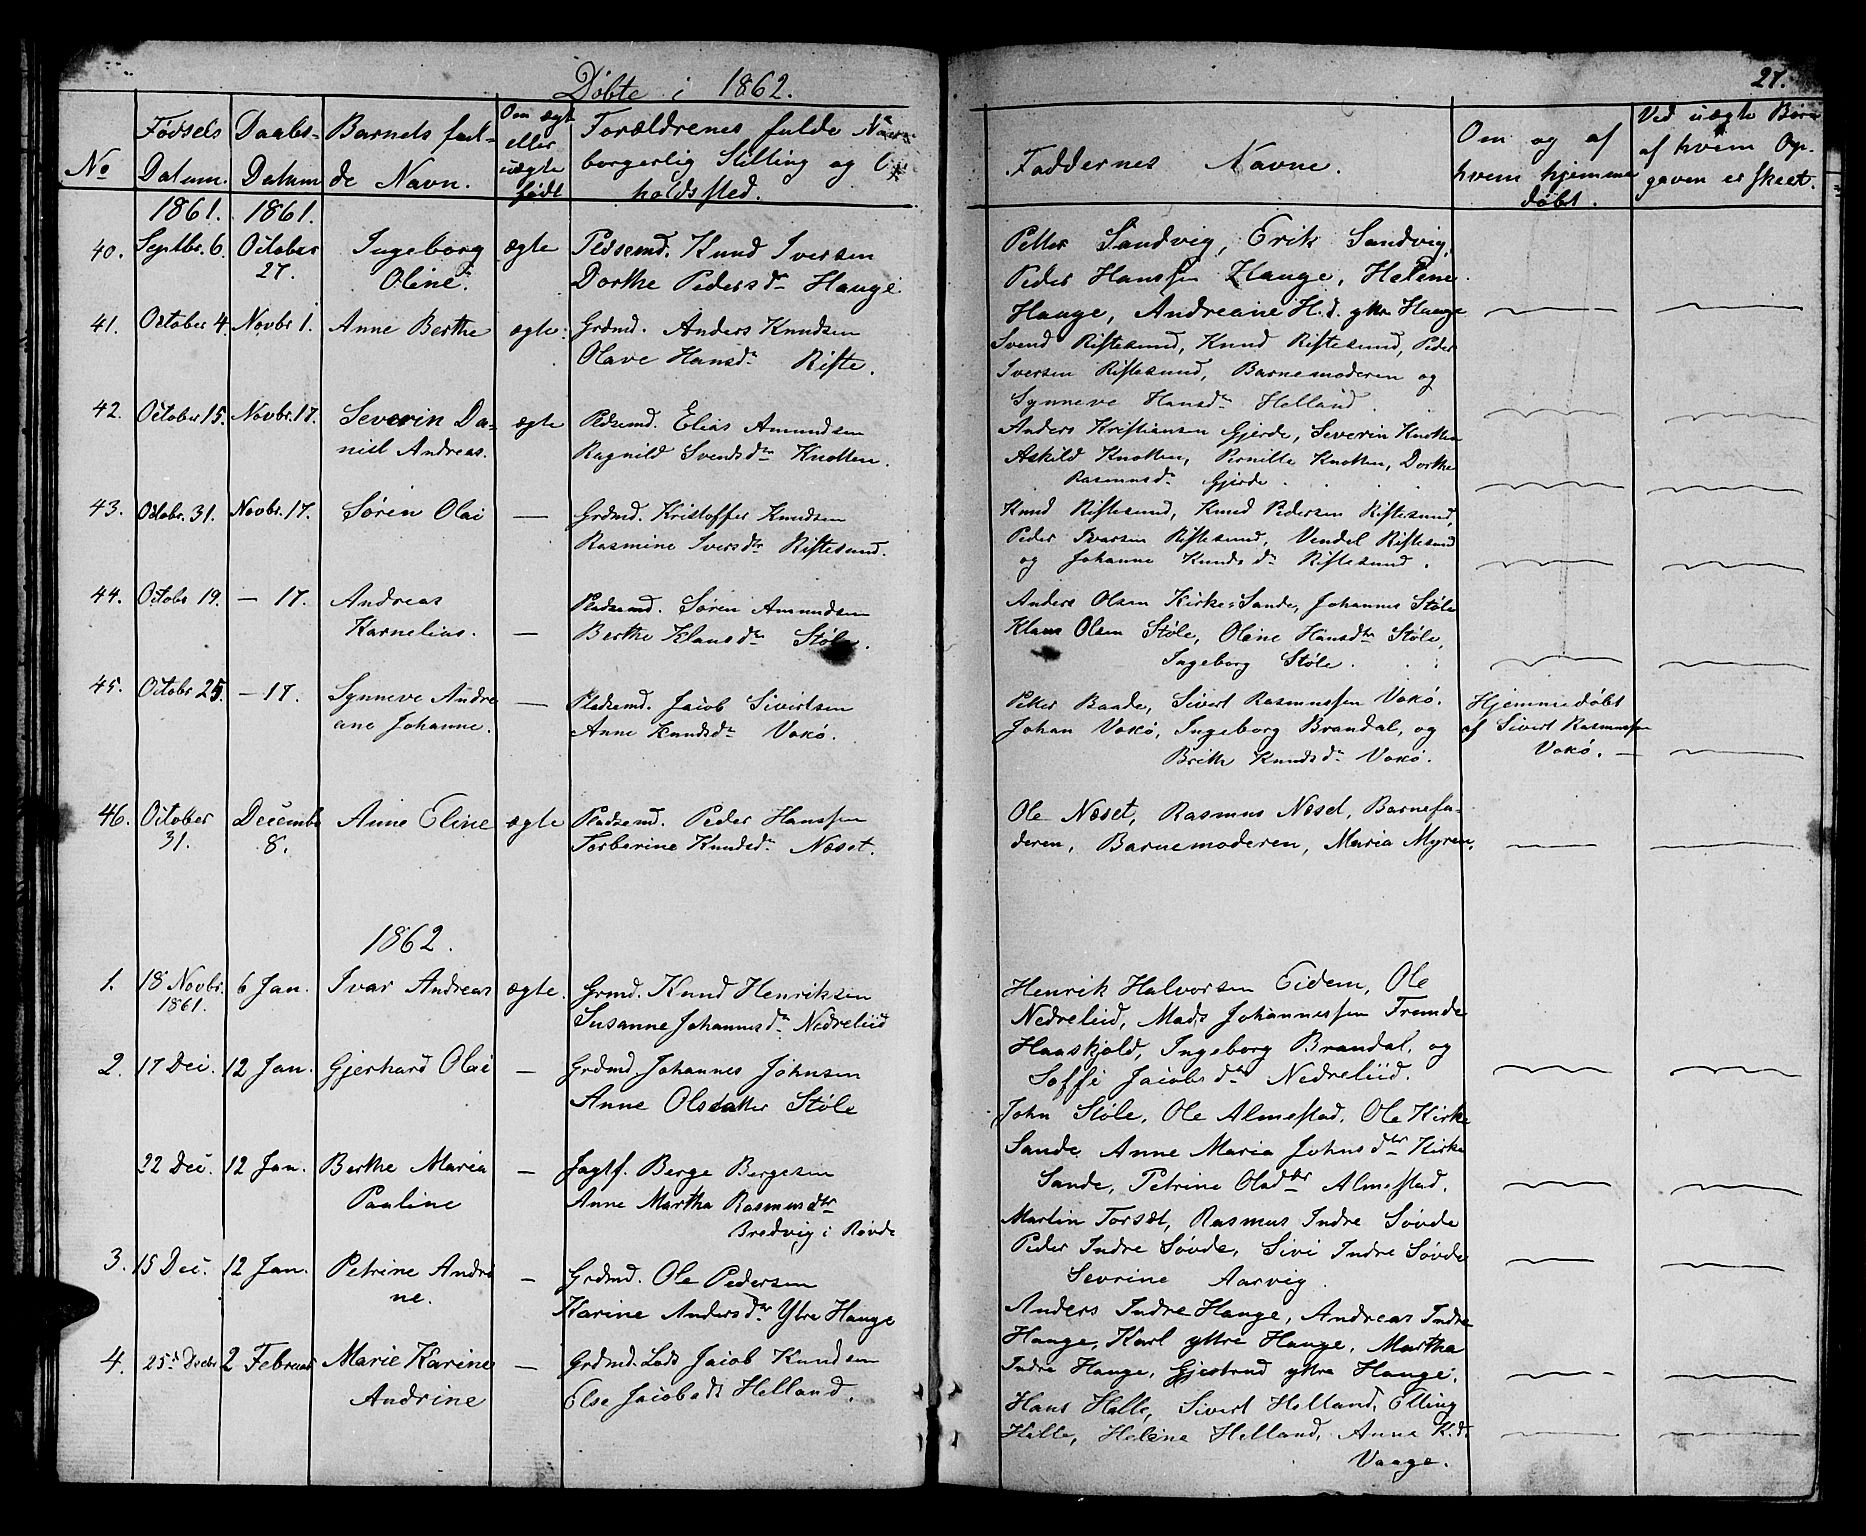 Døbte i 1862.
27.
No
Fødsels Datum.
Daabs- Datum
Barnets ful- de Navn.
Om ægt eller uægte født
Forældrenes fulde Navn borgerlig Stilling og Op holdssted.
Faddernes Navne.
Om og af hvem hjemme døbt.
Ved uægte Børn af hvem Op- gaven er skeet.
1861. 1861.
40. Septbr. 6. October 27. Ingeborg Oline. ægte
Pldsemd. Knud Iversen
Dorthe Pedersdr Hauge
Petter Sandvig, Erik Sandvig,
Peder Hanssen Hauge, Helene
Hauge, Andreane H.d. yttre Hauge
41. October 4. Novbr 1. Anne Berthe ægte.
Grdmd. Anders Knudsen
Olave Hansdr Rifte.
Svend Riftesund, Knud Riftesund, Peder
Iversen Riftesund, Barnemoderen og
Synneve Hansdr Helland.
42. October 15. Novbr. 17. Severin Da- niel Andreas. ægte
Pldsemd. Elias Amundsen
Ragnild Svendsdtr Knotten.
Anders Kristiansen Gjerde, Severin Knotten
Askild Knotten, Pernille Knotten, Dorthe
Rasmusdr Gjerde.
43. Octobr. 31. Novbr. 17. Søren Olai —
Grdmd. Kristoffer Knudsen
Rasmine Iversdtr Riftesund.
Knud Riftesund, Knud Pedersen Riftesund,
Peder Ivarsen Riftesund, Vendel Riftesund
og Johanne Knudsdr Riftesund.
44. Octobr 19. — 17. Andreas Karnelius. —
Pladsemd. Søren Amundsen
Berthe Klausdtr Støle.
Anders Olsen Kirke-Sande, Johannes Støle
Klaus Olsen Støle, Oline Hansdtr Støle,
Ingeborg Støle.
45. Octobr 25. — 17. Synneve Andre ane Johanne. —
Pladsemd. Jacob Sivertsen
Anne Knudsdr Voksø.
Petter Baade, Sivert Rasmussen Voksø.
Johan Voksø, Ingeborg Brandal, og
Brithe Knudsdr Voksø.
Hjemmedøbt
af Sivert Rasmussen
Voksø. —
46. October 31. Decembr 8. Anne Eline ægte
Pladsemd. Peder Hanssen
Torberine Knudsdr. Næset.
Ole Næset, Rasmus Næset, Barnefa-
deren, Barnemoderen, Maria Myren.
1862.
1. 18 Novbr. 1861. 6 Jan. Ivar Andreas ægte.
Grmd. Knud Henriksen
Susanne Johannesdr Nedreliid
Henrik Halvorsen Eidem, Ole
Nedreliid, Mads Johannessen Fremde
Haaskjold, Ingeborg Brandal, og
Soffi Jacobsdtr Nedreliid.
2. 17 Dec. 12 Jan. Gjerhard Olai —
Grdmd. Johannes Johnsen
Anne Olsdatter Støle
John Støle, Ole Almestad, Ole Kirke
Sande Anne Maria Johnsdtr Kirke
Sande, Petrine Olsdtr Almestad.
22 Dec. 12 Jan. Berthe Maria Pauline —
Jagtf. Berge Bergesen
Anne Martha Rasmusdtr
Bredvig i Røvde
Martin Torsæt, Rasmus Indre Søvde
Peder Indre Søvde, Sivi Indre Søvde
Sevrine Aarvig.
3. 15 Dec. 12 Jan. Petrine Andri ne. —
Grdmd. Ole Pedersen
Karine Andersdtr Yttre Hauge
Anders Indre Hauge, Andreas Indre
Hauge, Karl yttre Hauge, Martha
Indre Hauge, Gjertrud yttre Hauge.
4. 25de Decbr 2 Februar Marie Karine Andrine —
Grdmd. Lods Jacob Knudsen
Else Jacobsdt Helland.
Hans Helle, Sivert Helland, Elling
Hille, Helena Helland, Anna K.d.
Vaage.